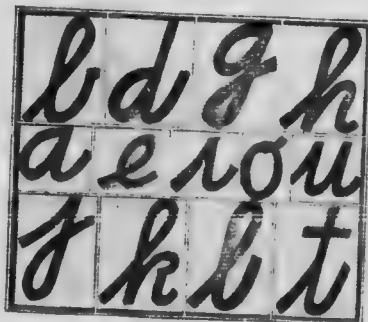 b d g h
a e i o u
f k l t